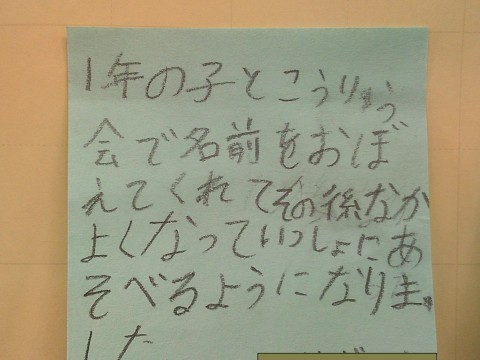 1年の子とこうりゅう
会で名前をおぼ
えてくれてその後なか
よくなっていっしょにあ
そべるようになりま
した